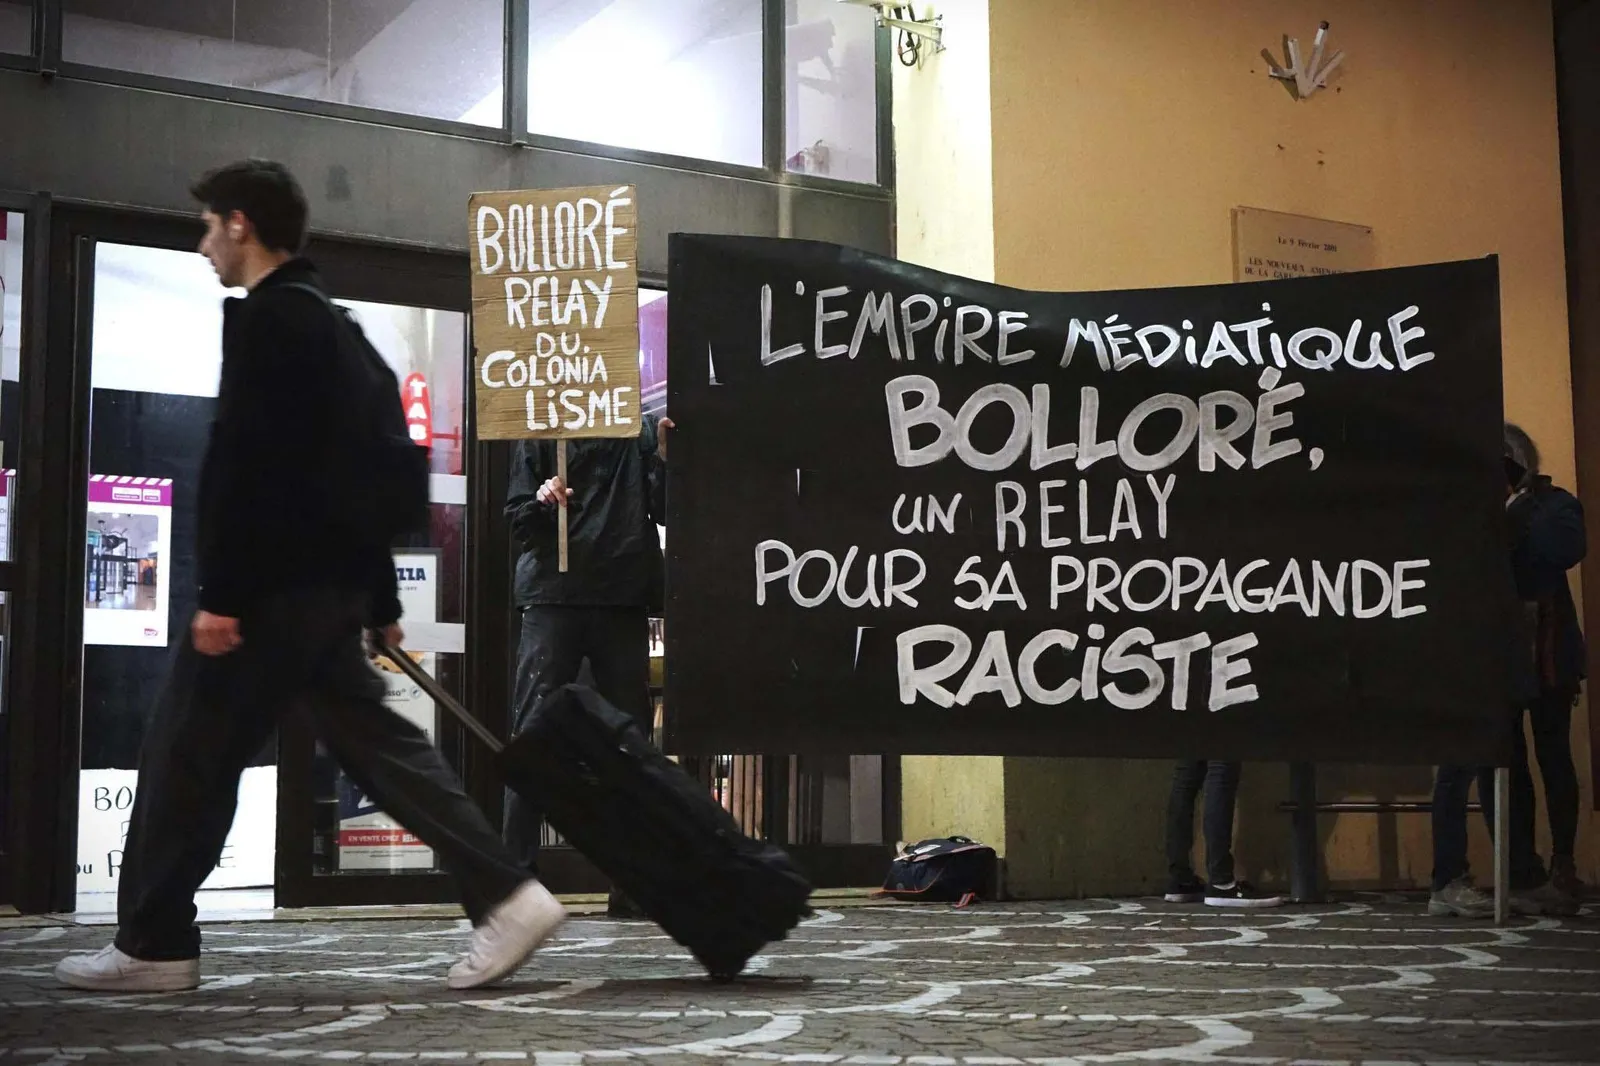 BOLLORÉ
RELAY
DU
COLONIA
LISME
L'EMPIRE MÉDIATIQUE
BOLLORÉ,
UN RELAY
POUR SA PROPAGANDE
RACISTE
Le 9 Février 2001
LES NOUVEAUX
DE LA GARE
TAB
ZZA
EN VENTE CHEZ RELAY
BO
OU R
E